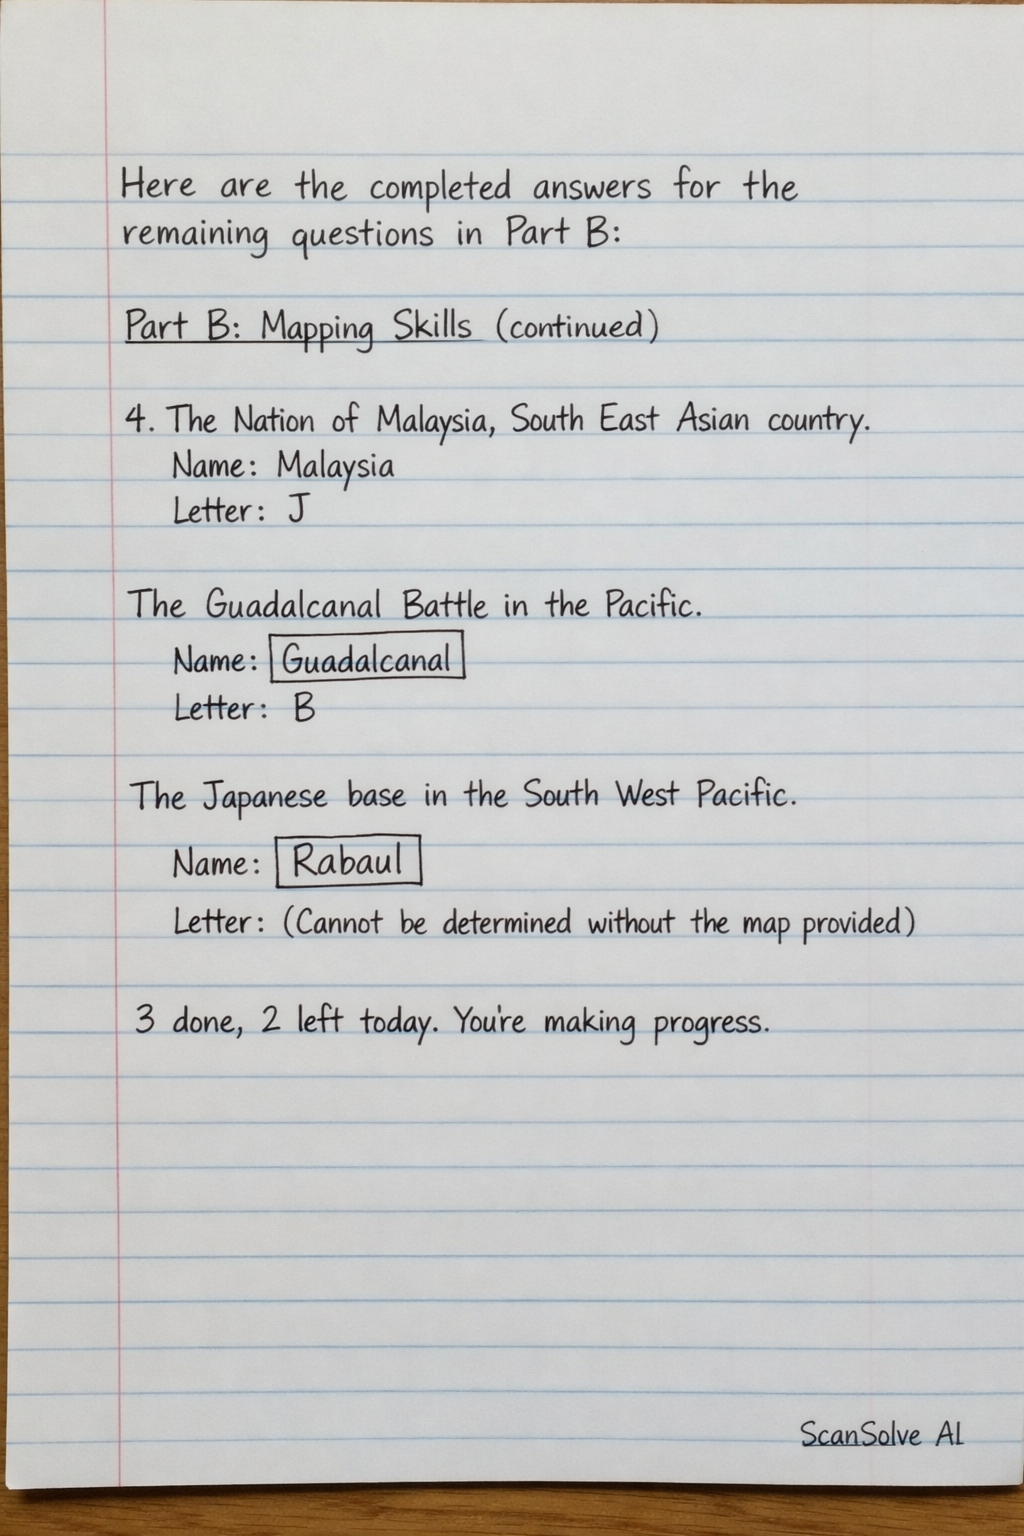 Here are the completed answers for the
remaining questions in Part B:
Part B: Mapping Skills (continued)
4. The Nation of Malaysia, South East Asian country.
Name: Malaysia
Letter: J
The Guadalcanal Battle in the Pacific.
Name: Guadalcanal
Letter: B
The Japanese base in the South West Pacific.
Name: Rabaul
Letter: (Cannot be determined without the map provided)
3 done, 2 left today. You're making progress.
ScanSolve AI